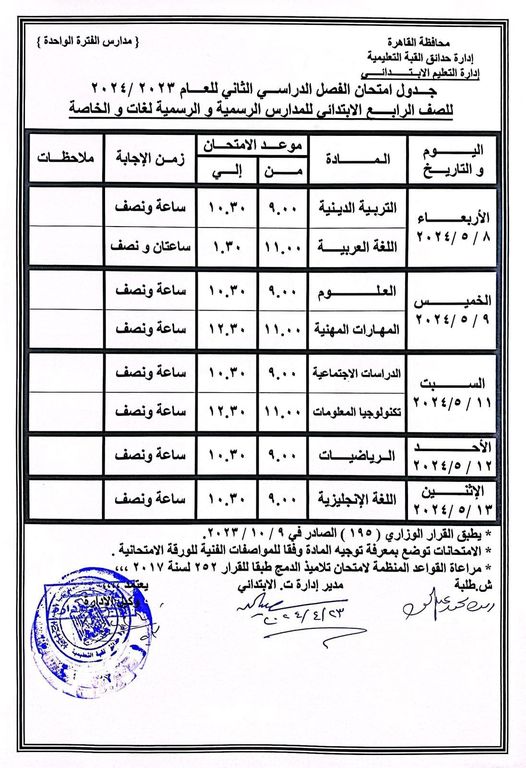 محافظة القاهرة
إدارة حدائق القبة التعليمية
إدارة التعليم الابتدائي
{ مدارس الفترة الواحدة }
جدول امتحان الفصل الدراسي الثاني للعام ٢٠٢٣ / ٢٠٢٤
للصف الرابع الابتدائي للمدارس الرسمية و الرسمية لغات و الخاصة
اليوم و التاريخ المادة موعد الامتحان زمن الإجابة ملاحظات
من إلي
الأربعاء ٨ / ٥ / ٢٠٢٤
التربية الدينية ٩.٠٠ ١٠.٣٠ ساعة ونصف
اللغة العربية ١١.٠٠ ١.٣٠ ساعتان و نصف
الخميس ٩ / ٥ / ٢٠٢٤
العلوم ٩.٠٠ ١٠.٣٠ ساعة ونصف
المهارات المهنية ١١.٠٠ ١٢.٣٠ ساعة ونصف
السبت ١١ / ٥ / ٢٠٢٤
الدراسات الاجتماعية ٩.٠٠ ١٠.٣٠ ساعة ونصف
تكنولوجيا المعلومات ١١.٠٠ ١٢.٣٠ ساعة ونصف
الأحد ١٢ / ٥ / ٢٠٢٤
الرياضيات ٩.٠٠ ١٠.٣٠ ساعة ونصف
الإثنين ١٣ / ٥ / ٢٠٢٤
اللغة الإنجليزية ٩.٠٠ ١٠.٣٠ ساعة ونصف
* يطبق القرار الوزاري ( ١٩٥ ) الصادر في ٩ / ١٠ / ٢٠٢٣.
* الامتحانات توضع بمعرفة توجيه المادة وفقا للمواصفات الفنية للورقة الامتحانية .
* مراعاة القواعد المنظمة لامتحان تلاميذ الدمج طبقا للقرار ٢٥٢ لسنة ٢٠١٧ ،،،،
ش.طلبة مدير إدارة ت. الابتدائي يعتمد ،،،،
وكيل الإدارة
٢٠٢٤/٤/٢٣